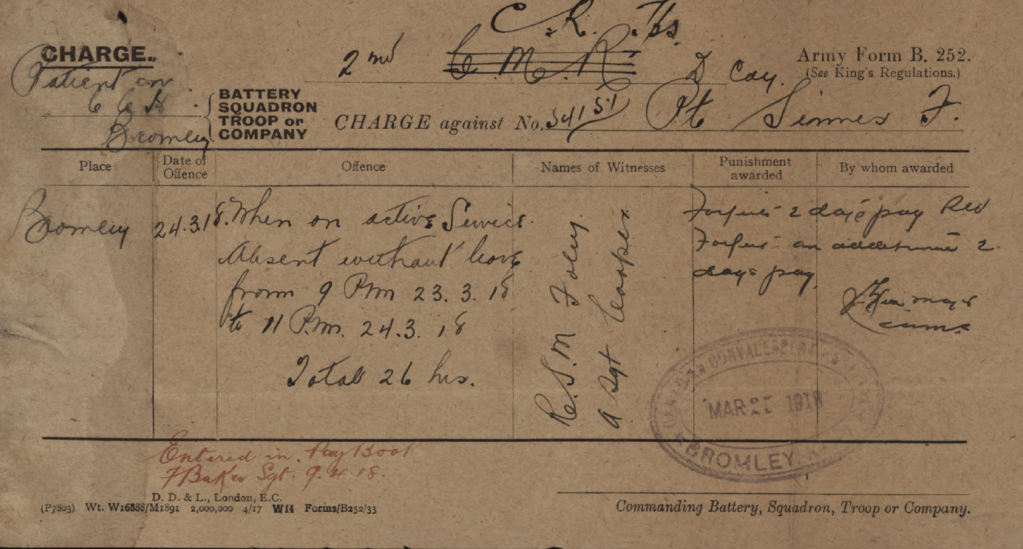 C. R. Tps.
CHARGE.
2nd C M R D Coy.
Army Form B. 252.
(See King's Regulations.)
Patient in
C C H
Bromley
BATTERY
SQUADRON
TROOP or
COMPANY
CHARGE against No. 54151 Pt Simms F.
Place
Date of Offence
Offence
Names of Witnesses
Punishment awarded
By whom awarded
Bromley
24.3.18.
When on active Service
Absent without leave
from 9 Pm 23.3.18
to 11 P.m. 24.3.18
Total 26 hrs.
R.S.M Foley
A Sgt Cooper
Forfeit 2 days pay
Forfeit an additional 2
days pay.
Major
CONVALESCENT
MAR 25 1918
BROMLEY, K
Entered in Pay Book
F Baker Sgt. 9.4.18.
D. D. & L., London, E.C.
(P7803) Wt. W16888/M1891 2,000,000 4/17 W14 Forms/B252/33
Commanding Battery, Squadron, Troop or Company.